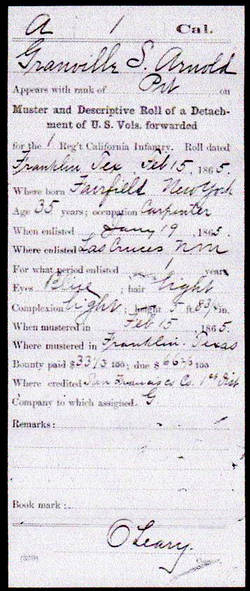 A 1 Cal.
Granville S. Arnold
Appears with rank of Pvt on
Muster and Descriptive Roll of a Detach-
ment of U. S. Vols. forwarded
for the 1 Reg't California Infantry. Roll dated
Franklin, Tex Feb 15, 1865.
Where born Fairfield New York
Age 35 years; occupation Carpenter
When enlisted Jany 19, 1865.
Where enlisted Las Cruces N M
For what period enlisted 1 years
Eyes Blue; hair Light
Complexion Light; height 5 ft. 8 in.
When mustered in Feb 15, 1865.
Where mustered in Franklin Texas
Bounty paid $33 100; due $66 100
Where credited San Francisco Co. 1st Dist
Company to which assigned G
Remarks:
Book mark:
O'Leary.